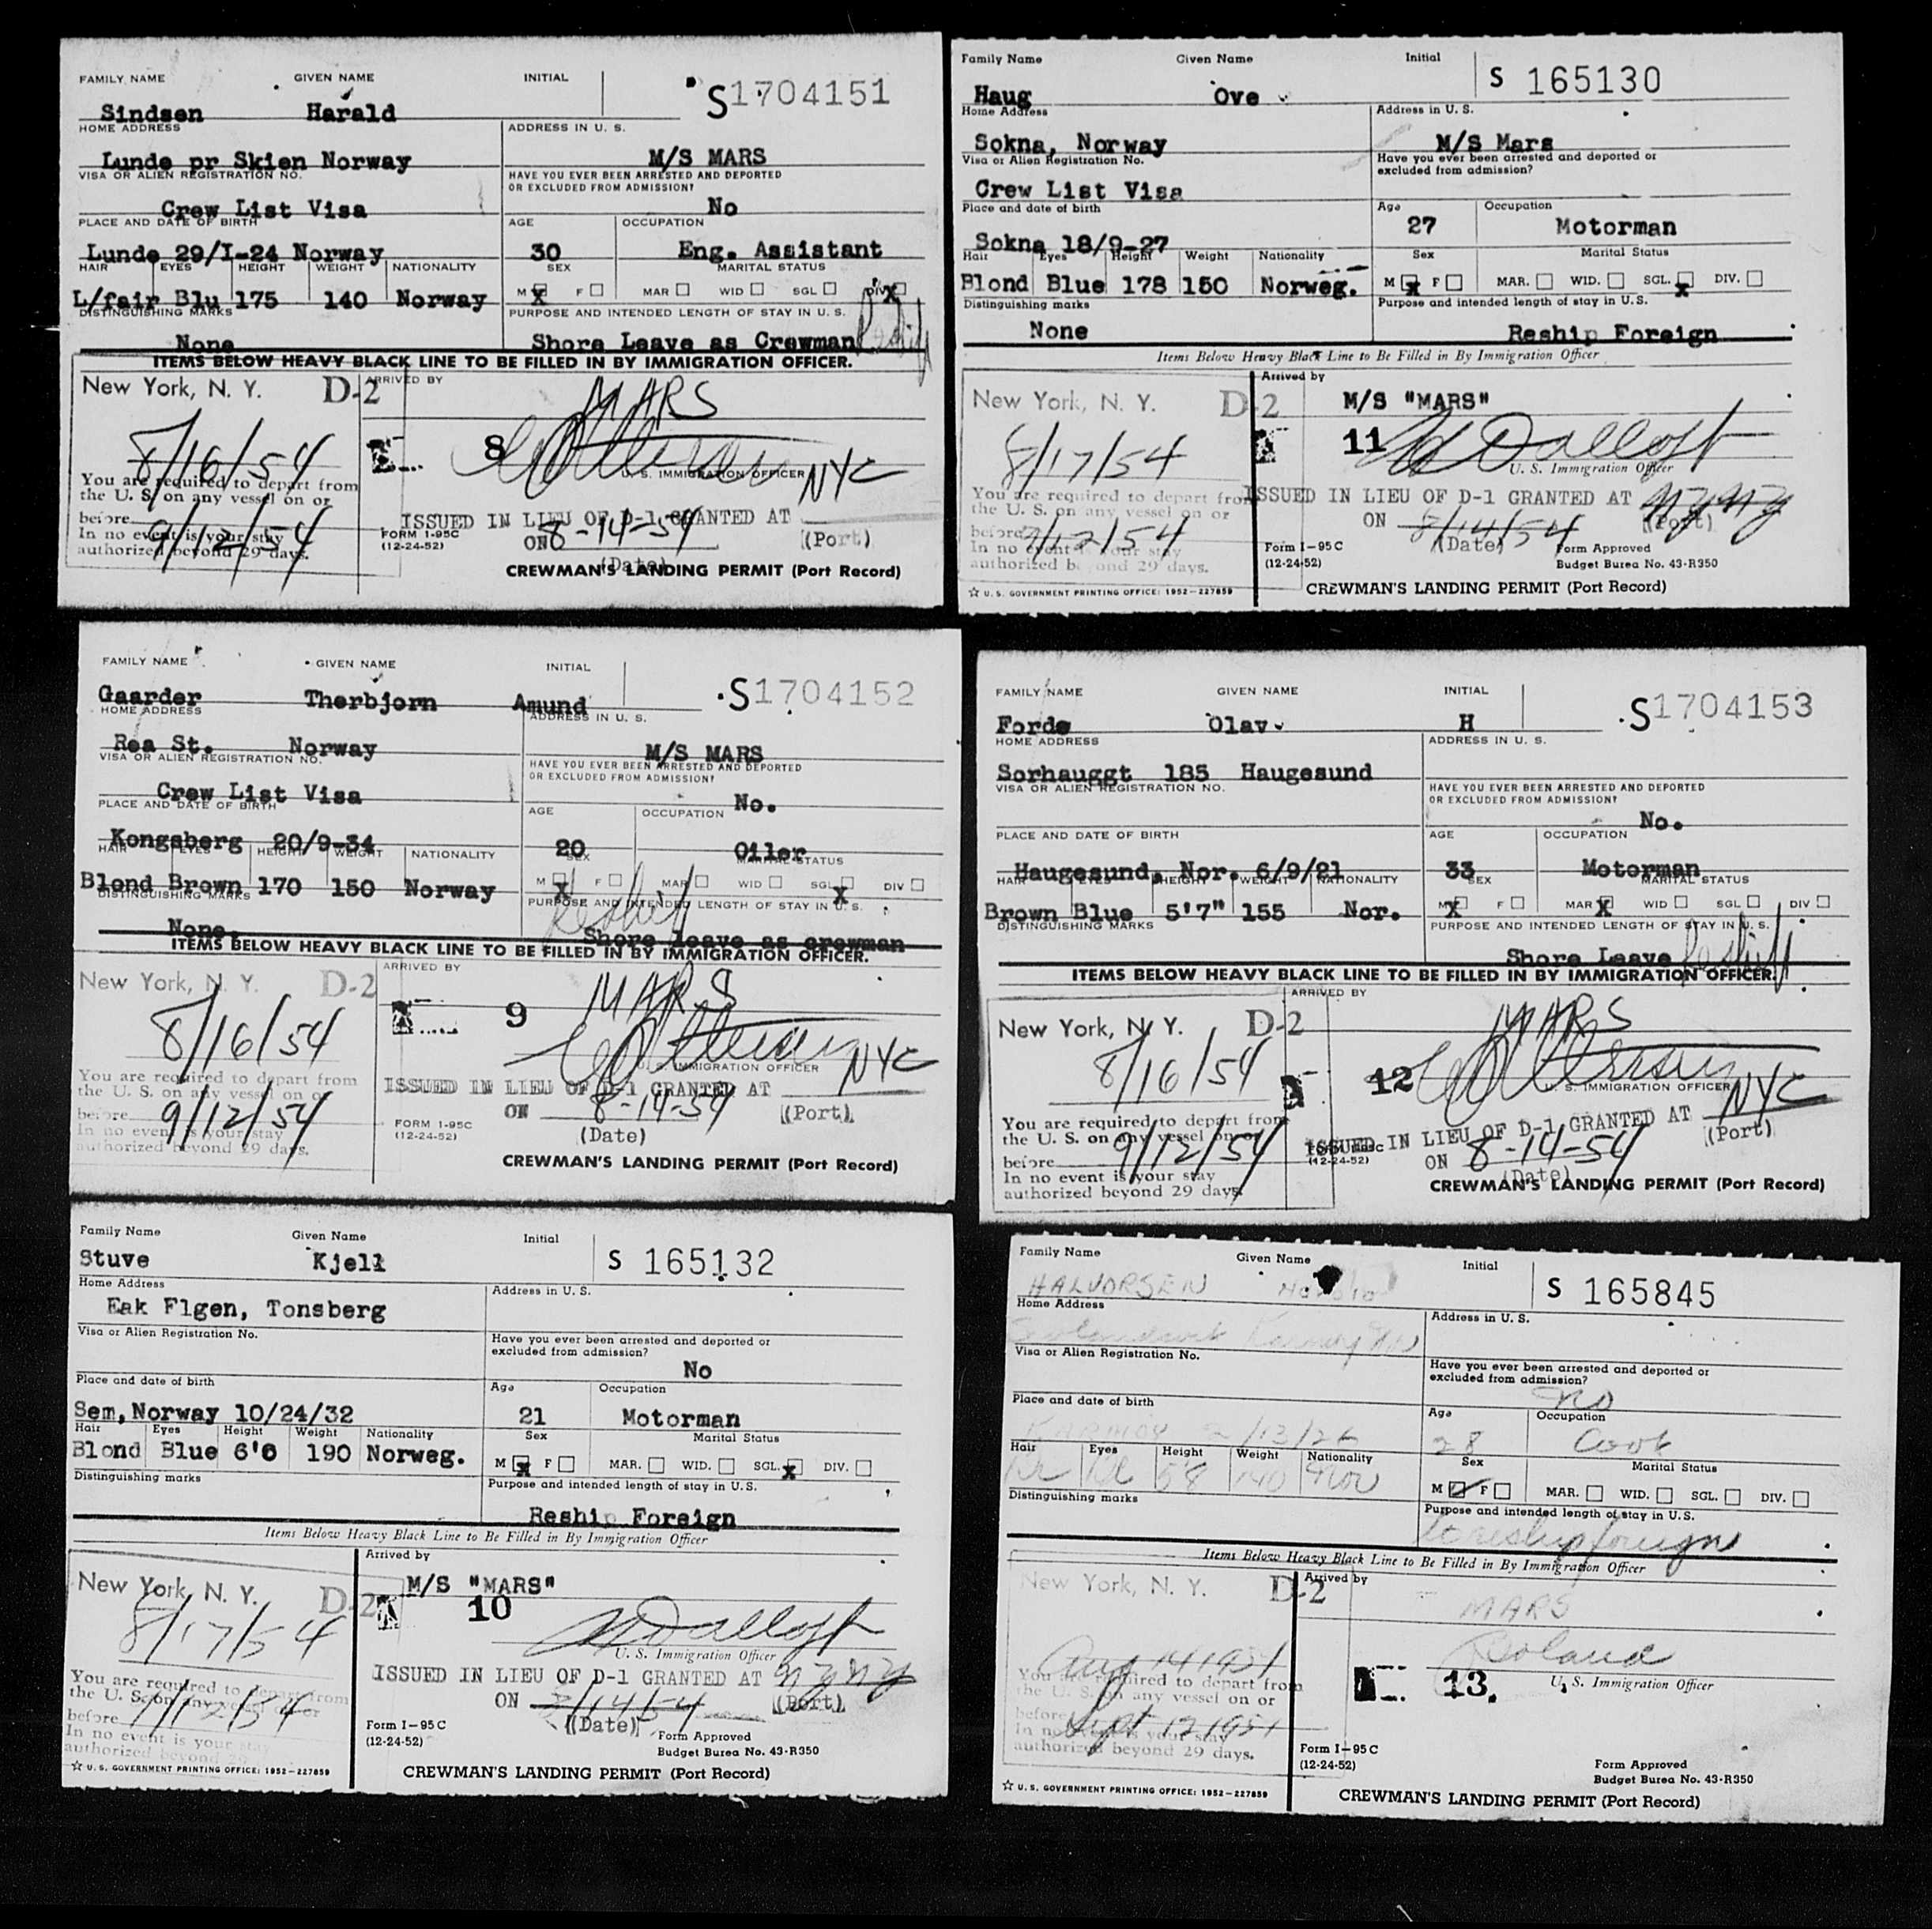 FAMILY NAME GIVEN NAME INITIAL
S1704151
Sindsen Harald
HOME ADDRESS ADDRESS IN U. S.
Lunde pr Skien Norway M/S MARS
VISA OR ALIEN REGISTRATION NO. HAVE YOU EVER BEEN ARRESTED AND DEPORTED
OR EXCLUDED FROM ADMISSION?
Crew List Visa No
PLACE AND DATE OF BIRTH AGE OCCUPATION
Lunde 29/I-24 Norway 30 Eng. Assistant
HAIR EYES HEIGHT WEIGHT NATIONALITY SEX MARITAL STATUS
L/fair Blu 175 140 Norway M X F MAR WID SGL DIV X
DISTINGUISHING MARKS PURPOSE AND INTENDED LENGTH OF STAY IN U. S.
None Shore Leave as Crewman Reship
ITEMS BELOW HEAVY BLACK LINE TO BE FILLED IN BY IMMIGRATION OFFICER.
New York, N. Y. D-2 ARRIVED BY MARS
8/16/54 8
U. S. IMMIGRATION OFFICER NYC
You are required to depart from
the U. S. on any vessel on or
before 9/12/54
In no event is your stay
authorized beyond 29 days.
ISSUED IN LIEU OF D-1 GRANTED AT
ON 8-14-54 (Port)
(Date)
FORM I-95C
(12-24-52)
CREWMAN'S LANDING PERMIT (Port Record)
Family Name Given Name Initial
S 165130
Haug Ove
Home Address Address in U. S.
Sokna, Norway M/S Mars
Visa or Alien Registration No. Have you ever been arrested and deported or
excluded from admission?
Crew List Visa
Place and date of birth Age Occupation
Sokna 18/9-27 27 Motorman
Hair Eyes Height Weight Nationality Sex Marital Status
Blond Blue 178 150 Norweg. M X F MAR. WID. SGL. X DIV.
Distinguishing marks Purpose and intended length of stay in U.S.
None Reship Foreign
Items Below Heavy Black Line to Be Filled in By Immigration Officer
New York, N. Y. D-2 Arrived by
M/S "MARS"
8/17/54 11
U. S. Immigration Officer
You are required to depart from
the U. S. on any vessel on or
before 9/12/54
In no event is your stay
authorized beyond 29 days.
ISSUED IN LIEU OF D-1 GRANTED AT NYNY
ON 8/14/54 (Port)
(Date)
Form I-95C
(12-24-52)
Form Approved
Budget Burea No. 43-R350
☆ U. S. GOVERNMENT PRINTING OFFICE: 1952-227859
CREWMAN'S LANDING PERMIT (Port Record)
FAMILY NAME GIVEN NAME INITIAL
S1704152
Gaarder Therbjorn Amund
HOME ADDRESS ADDRESS IN U. S.
Rea St. Norway M/S MARS
VISA OR ALIEN REGISTRATION NO. HAVE YOU EVER BEEN ARRESTED AND DEPORTED
OR EXCLUDED FROM ADMISSION?
Crew List Visa No.
PLACE AND DATE OF BIRTH AGE OCCUPATION
Kongsberg 20/9-34 20 Oiler
HAIR EYES HEIGHT WEIGHT NATIONALITY SEX MARITAL STATUS
Blond Brown 170 150 Norway M X F MAR WID SGL X DIV
DISTINGUISHING MARKS PURPOSE AND INTENDED LENGTH OF STAY IN U. S.
None. Reship Shore leave as crewman
ITEMS BELOW HEAVY BLACK LINE TO BE FILLED IN BY IMMIGRATION OFFICER.
New York, N. Y. D-2 ARRIVED BY MARS
8/16/54 9
U. S. IMMIGRATION OFFICER NYC
You are required to depart from
the U. S. on any vessel on or
before 9/12/54
In no event is your stay
authorized beyond 29 days.
ISSUED IN LIEU OF D-1 GRANTED AT
ON 8-14-54 (Port)
(Date)
FORM I-95C
(12-24-52)
CREWMAN'S LANDING PERMIT (Port Record)
FAMILY NAME GIVEN NAME INITIAL
S1704153
Forde Olav H
HOME ADDRESS ADDRESS IN U. S.
Sorhauggt 185 Haugesund
VISA OR ALIEN REGISTRATION NO. HAVE YOU EVER BEEN ARRESTED AND DEPORTED
OR EXCLUDED FROM ADMISSION?
No.
PLACE AND DATE OF BIRTH AGE OCCUPATION
Haugesund, Nor. 6/9/21 33 Motorman
HAIR EYES HEIGHT WEIGHT NATIONALITY SEX MARITAL STATUS
Brown Blue 5'7" 155 Nor. M X F MAR X WID SGL DIV
DISTINGUISHING MARKS PURPOSE AND INTENDED LENGTH OF STAY IN U. S.
Shore Leave Reship
ITEMS BELOW HEAVY BLACK LINE TO BE FILLED IN BY IMMIGRATION OFFICER.
New York, N. Y. D-2 ARRIVED BY MARS
8/16/54 12
U. S. IMMIGRATION OFFICER NYC
You are required to depart from
the U. S. on any vessel on or
before 9/12/54
In no event is your stay
authorized beyond 29 days.
ISSUED IN LIEU OF D-1 GRANTED AT
ON 8-14-54 (Port)
(Date)
(12-24-52)
CREWMAN'S LANDING PERMIT (Port Record)
Family Name Given Name Initial
S 165132
Stuve Kjell
Home Address Address in U. S.
Eak Flgen, Tonsberg
Visa or Alien Registration No. Have you ever been arrested and deported or
excluded from admission?
No
Place and date of birth Age Occupation
Sem, Norway 10/24/32 21 Motorman
Hair Eyes Height Weight Nationality Sex Marital Status
Blond Blue 6'0 190 Norweg. M X F MAR. WID. SGL. X DIV.
Distinguishing marks Purpose and intended length of stay in U.S.
Reship Foreign
Items Below Heavy Black Line to Be Filled in By Immigration Officer
New York, N. Y. D-2 Arrived by
M/S "MARS"
8/17/54 10
U. S. Immigration Officer
You are required to depart from
the U. S. on any vessel on or
before 9/12/54
In no event is your stay
authorized beyond 29
ISSUED IN LIEU OF D-1 GRANTED AT NYNY
ON 8/14/54 (Port)
(Date)
Form I-95C
(12-24-52)
Form Approved
Budget Burea No. 43-R350
☆ U. S. GOVERNMENT PRINTING OFFICE: 1952-227859
CREWMAN'S LANDING PERMIT (Port Record)
Family Name Given Name Initial
S 165845
HALVORSEN
Home Address Address in U. S.
Visa or Alien Registration No. Have you ever been arrested and deported or
excluded from admission?
No
Place and date of birth Age Occupation
KARMOY 2/13/26 28 Cook
Hair Eyes Height Weight Nationality Sex Marital Status
Br Bl 5'8 140 Nor M F MAR. WID. SGL. DIV.
Distinguishing marks Purpose and intended length of stay in U.S.
to reship foreign
Items Below Heavy Black Line to Be Filled in By Immigration Officer
New York, N. Y. D-2 Arrived by
MARS
Aug 14 1954 Roland
13. U. S. Immigration Officer
You are required to depart from
the U. S. on any vessel on or
before Sept 12 1954
In no event is your stay
authorized beyond 29 days.
Form I-95C
(12-24-52)
Form Approved
Budget Burea No. 43-R350
☆ U. S. GOVERNMENT PRINTING OFFICE: 1952-227859
CREWMAN'S LANDING PERMIT (Port Record)